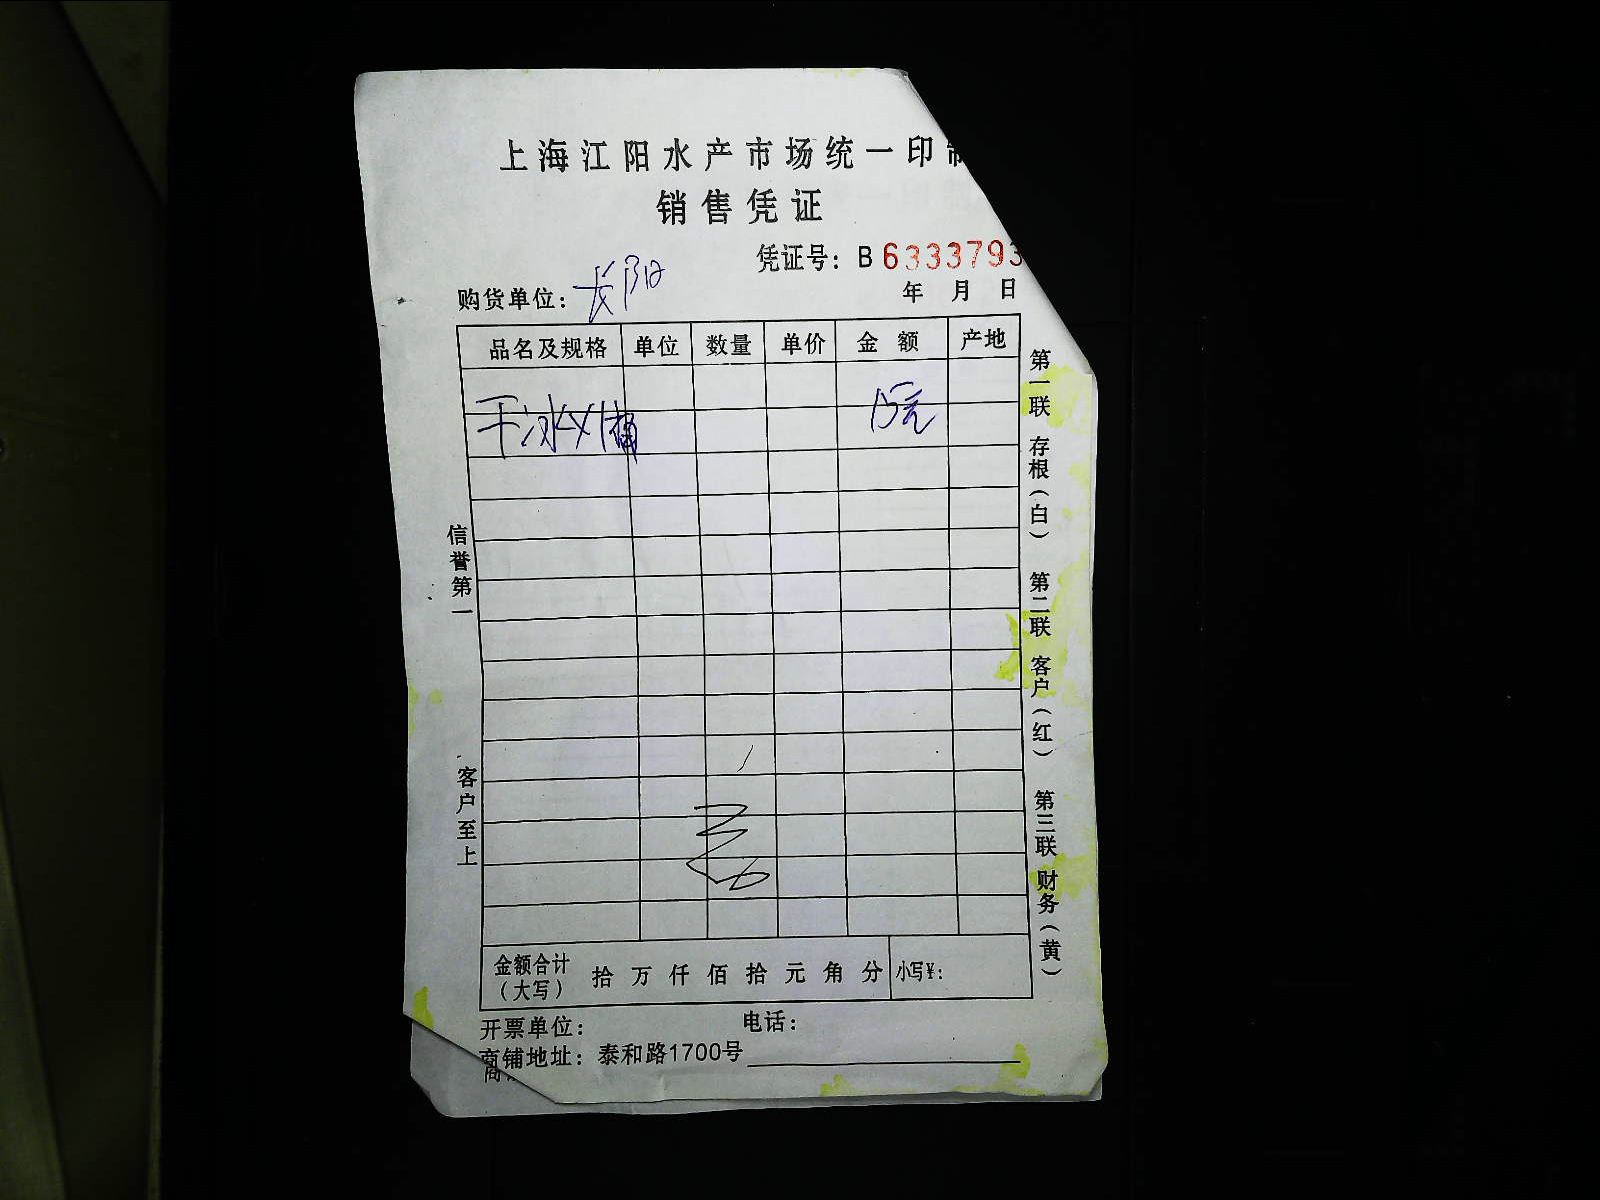 上海江阳水产市场统一印制
销售凭证
凭证号：B 6333793
购货单位：长阳 年 月 日
品名及规格 单位 数量 单价 金额 产地
干冰×1桶 15元
金额合计（大写） 拾 万 仟 佰 拾 元 角 分 小写¥：
开票单位： 电话：
商铺地址：泰和路1700号
信誉第一 客户至上
第一联 存根（白） 第二联 客户（红） 第三联 财务（黄）